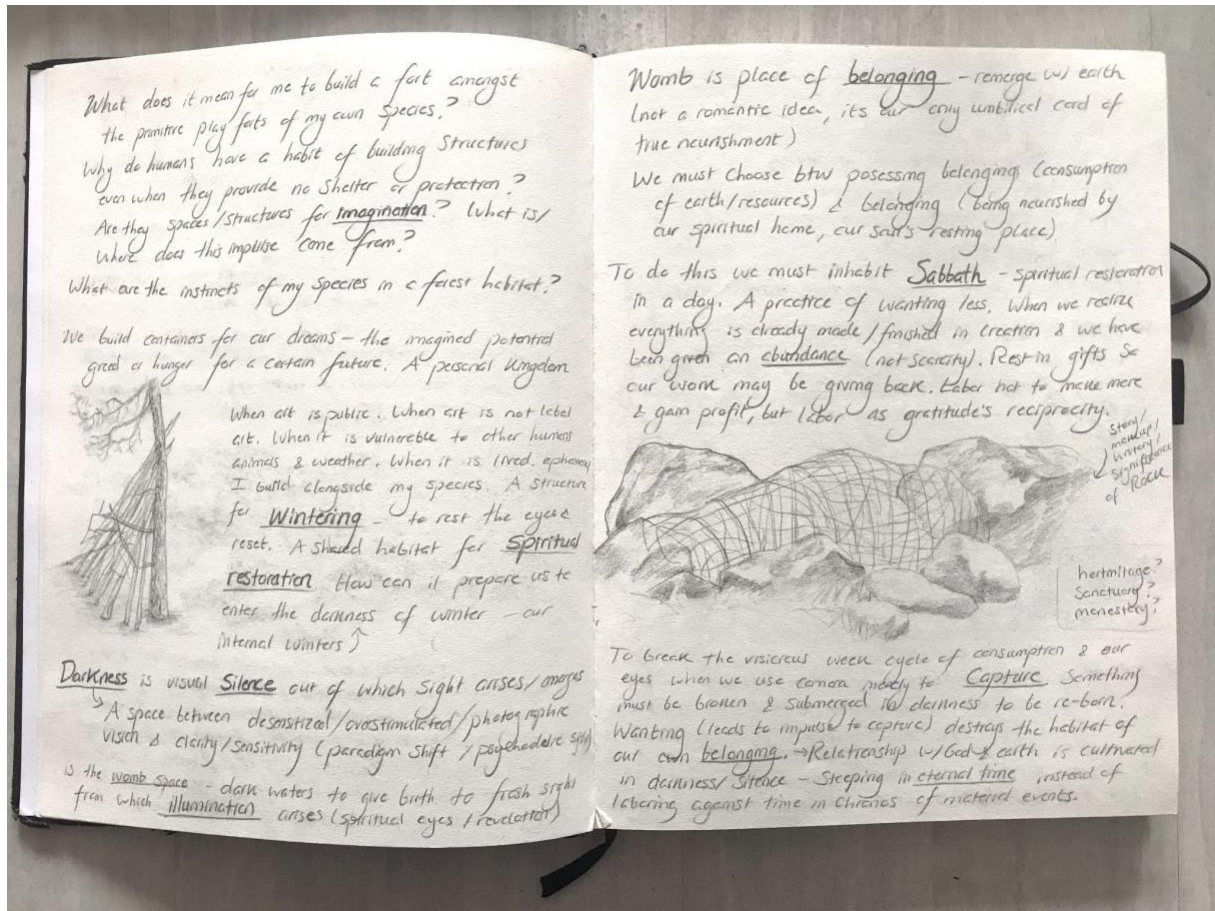 What does it mean for me to build a fort amongst
the primitive play forts of my own species?
Why do humans have a habit of building structures
even when they provide no shelter or protection?
Are they spaces/structures for imagination? What is/
where does this impulse come from?
What are the instincts of my species in a forest habitat?
We build containers for our dreams – the imagined potential
greed or hunger for a certain future. A personal kingdom
When art is public. When art is not label
art. When it is vulnerable to other humans
animals & weather. When it is lived. ephemeral
I build alongside my species. A structure
for Wintering – to rest the eyes &
reset. A shared habitat for Spiritual
restoration How can it prepare us to
enter the darkness of winter our
internal winters
Darkness is visual Silence out of which sight arises/emerges
A space between desensitized/overstimulated/photographic
vision & clarity/sensitivity (paradigm shift / psychedelic
is the womb space – dark waters to give birth to fresh sight
from which illumination arises (spiritual eyes / revelation)
Womb is place of belonging – remerge w/ earth
(not a romantic idea, its our only umbilical cord of
true nourishment)
We must choose btw posessing belongings (consumption
of earth/resources) & belonging (being nourished by
our spiritual home, our soul's resting place).
To do this we must inhabit Sabbath – spiritual restoration
in a day. A practice of wanting less. When we realize
everything is already made/finished in creation & we have
been given an abundance (not scarcity). Rest in gifts so
our work may be giving back. Labor not to make more
& gain profit, but labor as gratitude's reciprocity.
Story/
history/
significance
of Rock
hertmitage?
Sanctuary?
monestery?
To break the visicreus week cycle of consumption & our
eyes when we use camera merely to Capture Something
must be broken & submerged in darkness to be re-born.
Wanting (leads to impulse to capture) destroys the habitat of
our own belonging. →Relationship w/God & earth is cultivated
in darkness/silence – Steeping in eternal time instead of
laboring against time in Chronos of material events.